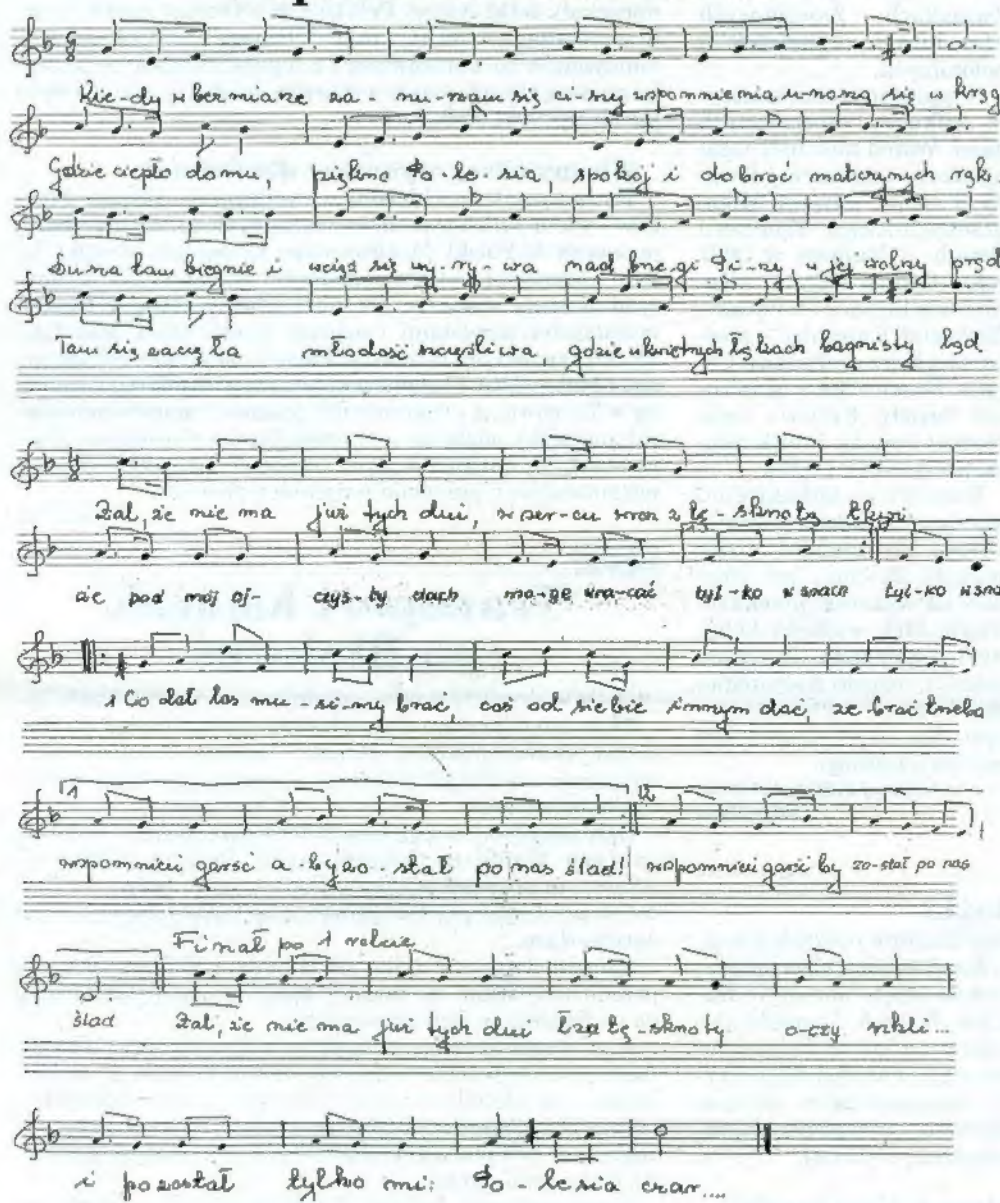 Kie-dy w bezmiarze za-nu-rzam się ci-szy wspomnienia wznoszą się w krąg
Gdzie ciepło domu, piękno Po-le-sia, spokój i dobroć matczynych rąk
Du-na tam biegnie i wciąż się wy-ry-wa nad brze-gi Pi-ny, w jej wolny prąd
Tam się zaczę-ła młodość szczęśliwa, gdzie w kwietnych łąkach bagnisty ląd
Żal, że nie ma już tych dni, w ser-cu wraz z tę-sknotą tkwi
że pod mój oj-czys-ty dach mo-gę wra-cać tyl-ko w snach tyl-ko w sna
1 Co dał los mu-si-my brać, coś od siebie innym dać, ze-brać trzeba
1
2.
wspomnień garść a by zo-stał po nas ślad! wspomnień garść by zo-stał po nas
Finał po 1 volcie
ślad Żal, że nie ma już tych dni Łza tę-sknoty o-czy szkli...
i pozostał tylko mi: Po-lesia czar....